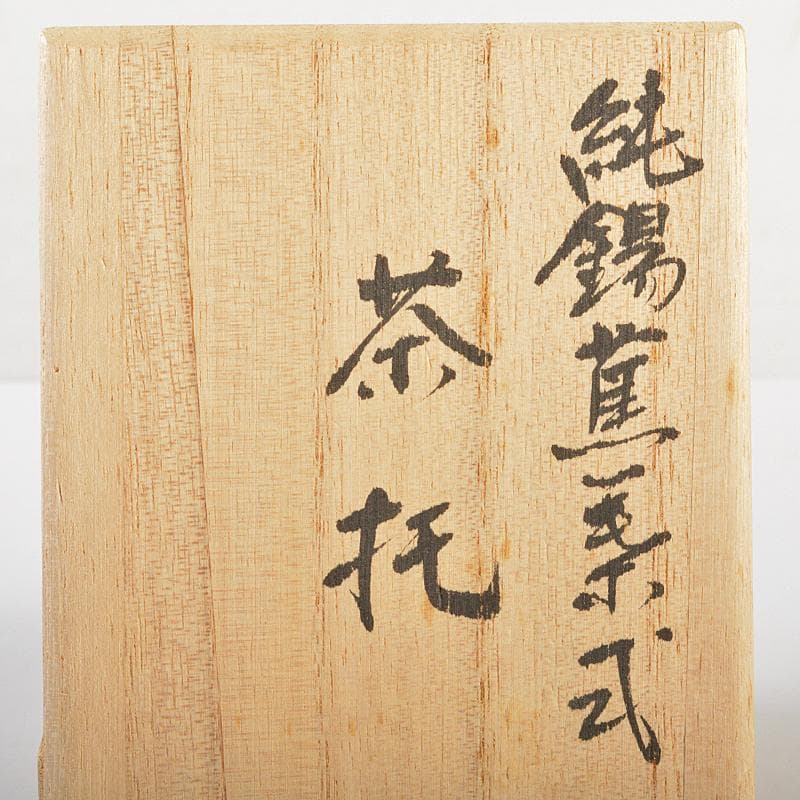 純錫蕉葉式
茶托